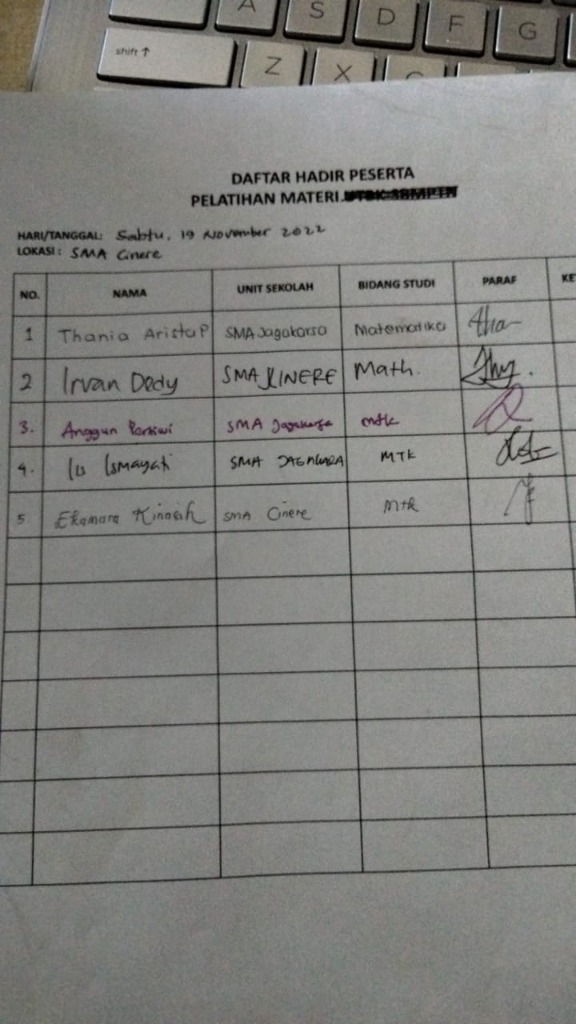 A S D F G
shift ↑ Z X C
DAFTAR HADIR PESERTA
PELATIHAN MATERI UTBK SBMPTN
HARI/TANGGAL: Sabtu, 19 November 2022
LOKASI: SMA Cinere
NO. NAMA UNIT SEKOLAH BIDANG STUDI PARAF KE
1 Thania Arista P SMA Jagakarsa Matematika
2 Irvan Dedy SMA CINERE Math.
3. Anggun SMA Jagakarsa mtk
4. Iis Ismayati SMA JAGAKARSA MTK
5 SMA Cinere Mtk